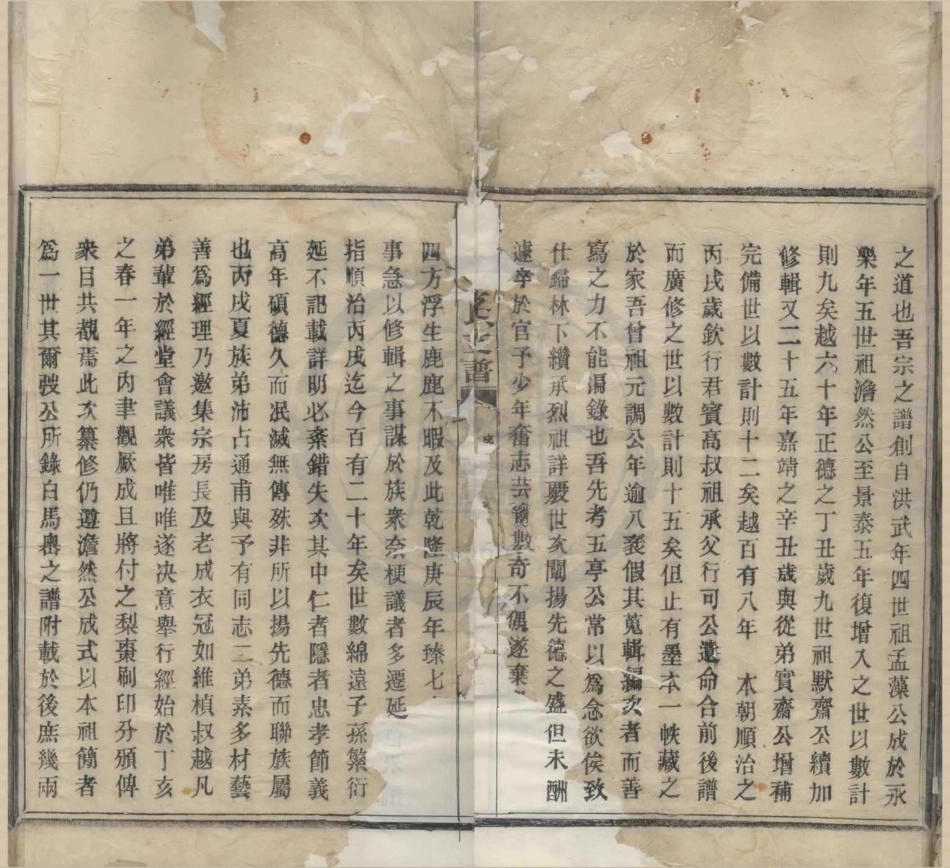 之道也吾宗之譜創自洪武年四世祖孟藻公成於永
樂年五世祖澹然公至景泰五年復增入之世以數計
則九矣越六十年正德之丁丑歲九世祖默齋公續加
修輯又二十五年嘉靖之辛丑歲與從弟實齋公增補
完備世以數計則十二矣越百有八年　本朝順治之
丙戌歲欽行君賓高叔祖承父行可公遺命合前後譜
而廣修之世以數計則十五矣但止有墨本一帙藏之
於家吾曾祖元調公年逾八袠假其蒐輯編次者而善
寫之力不能漏錄也吾先考五亭公常以為念欲俟致
仕歸林下纘承烈祖詳覈世次闡揚先德之盛但未酬
遽卒於官予少年奮志芸窗數奇不偶遂棄
四方浮生鹿鹿不暇及此乾隆庚辰年臻七
事急以修輯之事謀於族衆奈梗議者多遷延
指順治丙戌迄今百有二十年矣世數綿遠子孫繁衍
延不記載詳明必紊錯失次其中仁者隱者忠孝節義
高年碩德久而泯滅無傳殊非所以揚先德而聯族屬
也丙戌夏族弟沛占通甫與予有同志二弟素多材藝
善為經理乃邀集宗房長及老成衣冠如維楨叔越凡
弟輩於經堂會議衆皆唯唯遂決意舉行經始於丁亥
之春一年之內聿觀厥成且將付之梨棗刷印分頒俾
衆目共覩焉此次纂修仍遵澹然公成式以本祖簡者
為一世其爾公所錄白馬嶴之譜附載於後庶幾兩
譜